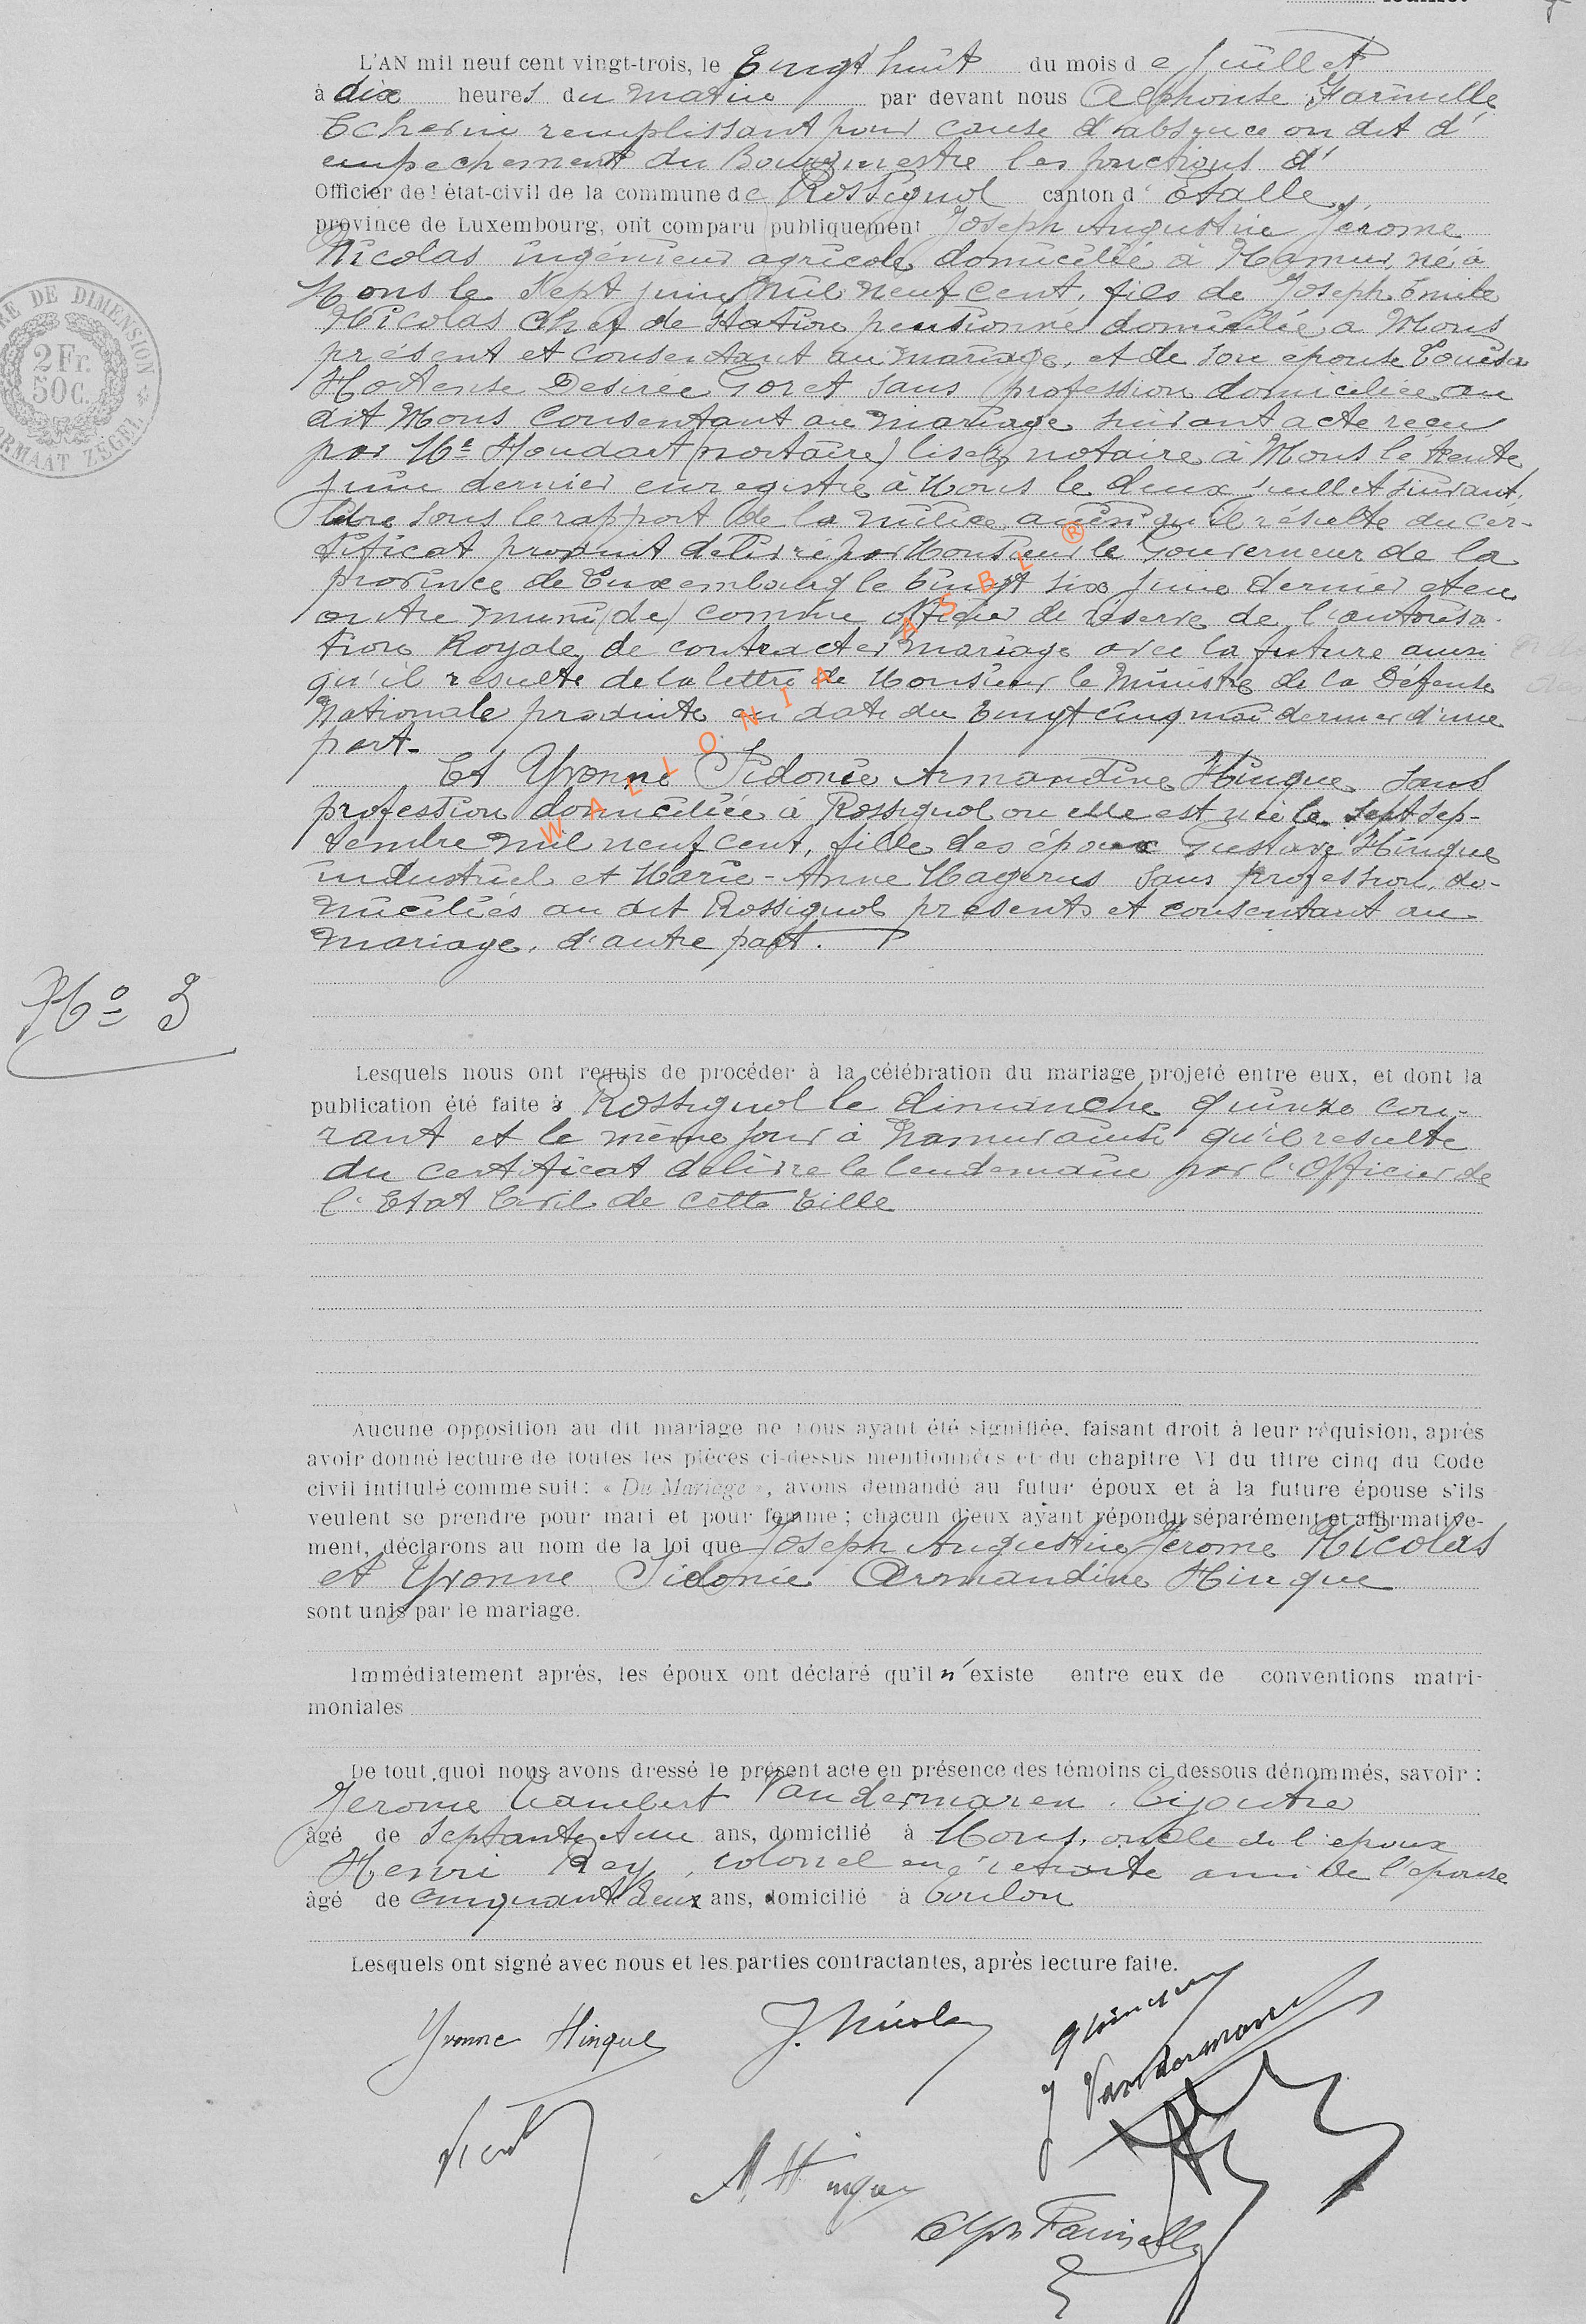 feuillet
L'AN mil neuf cent vingt-trois, le Vingt huit du mois de Juillet
à dix heures du matin par devant nous Alphonse Farinelle
Echevin remplissant pour cause d'absence ou dit d'
empechement du Bourgmestre les fonctions d'
Officier de l'état-civil de la commune de Rossignol canton d'Etalle,
province de Luxembourg, ont comparu publiquement Joseph Augustin Jérome
Nicolas ingénieur agricole domicilié à Namur, né à
Mons le Sept juin mil neuf cent, fils de Joseph Emile
Nicolas Chef de Station pensionné domicilié a Mons
présent et consentant au mariage, et de son épouse Louisa
Hortense Desirée Goret sans profession domiciliée au
dit Mons consentant au mariage suivant acte recu
par Me Houdart (nortaire) lisez notaire à Mons le trente
juin dernier enregistré à Mons le deux juillet suivant,
libre sous le rapport de la milice ainsi qu'il résulte du cer-
tificat produit délivré par Monsieur le Gouverneur de la
province de Luxembourg le vingt six juin dernier et en
outre muni (de) comme officier de réserve de l'autorisa-
tion Royale de contracter mariage avec la future ainsi
qu'il résulte de la lettre de Monsieur le Ministre de la Défense
Nationale produite en date du vingt cinq mai dernier d'une
part.
Et Yvonne Sidonie Armandine Hinque sans
profession domiciliée à Rossignol ou elle est née le sept Sep-
tembre mil neuf cent, fille des époux Gustave Hinque
industriel et Marie-Anne Magerus sans profession, do-
miciliés au dit Rossignol présents et consentant au
mariage, d'autre part.
WALLONIA ASBL ®
2 Fr.
50 C.
RE DE DIMENSION
FORMAAT ZEGEL
No 3
Lesquels nous ont requis de procéder à la célébration du mariage projeté entre eux, et dont la
publication été faite à Rossignol le dimanche quinze cou-
rant et le même jour à Namur ainsi qu'il resulte
du certificat délivre le lendemain par l'Officier de
l'Etat Civil de cette Ville
Aucune opposition au dit mariage ne nous ayant été signifiée, faisant droit à leur réquision, après
avoir donné lecture de toutes les pièces ci-dessus mentionnées et du chapitre VI du titre cinq du Code
civil intitulé comme suit: « Du Mariage », avons demandé au futur époux et à la future épouse s'ils
veulent se prendre pour mari et pour femme; chacun d'eux ayant répondu séparément et affirmative-
ment, déclarons au nom de la loi que Joseph Augustin Jérome Nicolas
et Yvonne Sidonie Armandine Hinque
sont unis par le mariage.
Immédiatement après, les époux ont déclaré qu'il n'existe entre eux de conventions matri-
moniales
De tout quoi nous avons dressé le présent acte en présence des témoins ci dessous dénommés, savoir :
Jerome Lambert Vandermaren, bijoutier
âgé de Septante et un ans, domicilié à Mons, oncle de l'epoux
Henri Rey, colonel en retraite ami de l'épouse
âgé de cinquante deux ans, domicilié à Toulon
Lesquels ont signé avec nous et les parties contractantes, après lecture faite.
Yvonne Hinque J. Nicolas
J Vandermaren
M Hinque
Alph Farinelle